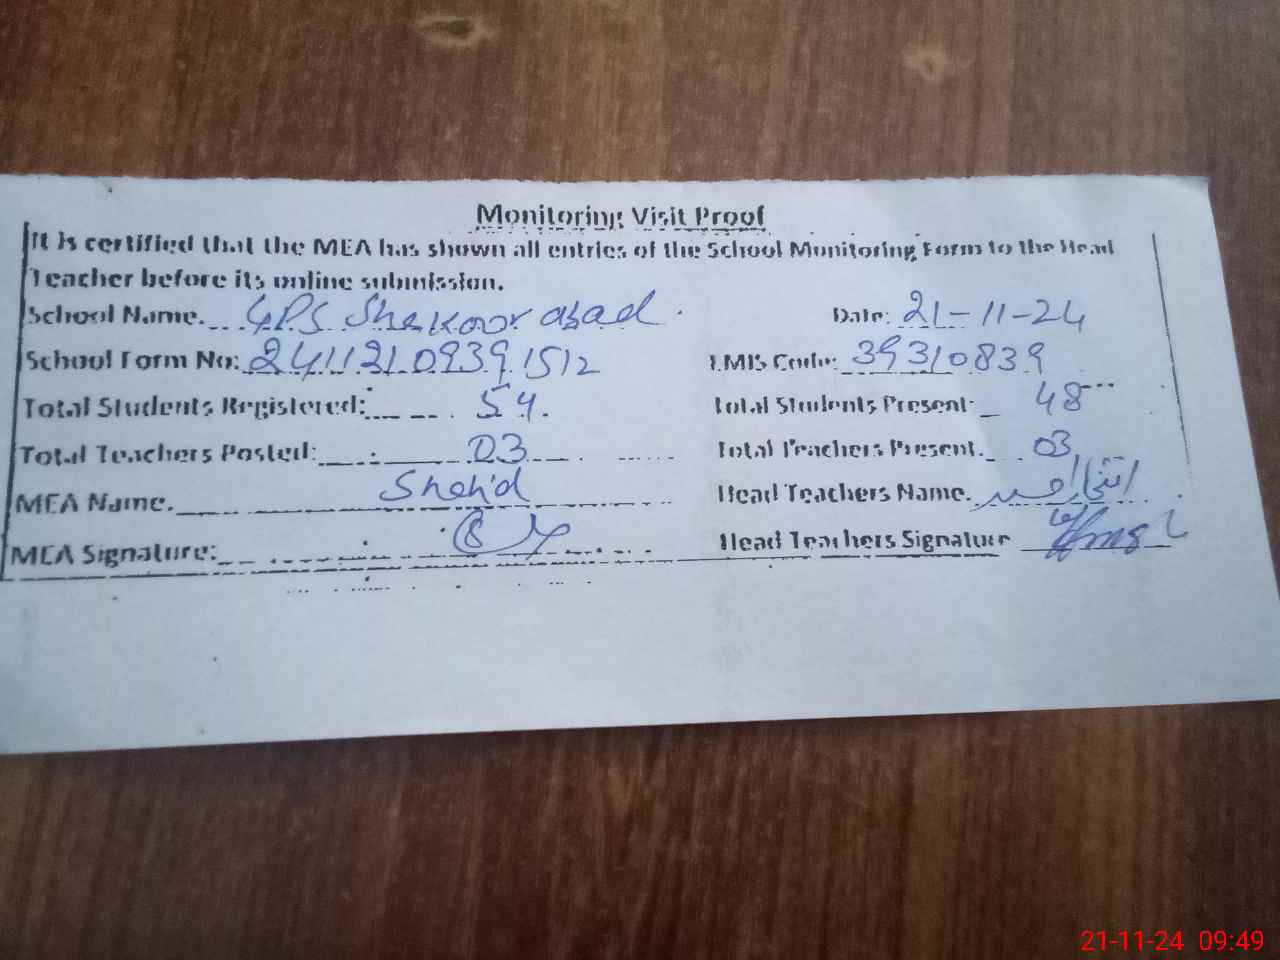 Monitoring Visit Proof
It is certified that the MEA has shown all entries of the School Monitoring Form to the Head
Teacher before its online submission.
School Name. GPS Shakoor abad. Date: 21-11-24
School Form No: 24112109391512 EMIS Code: 39310839
Total Students Registered: 54. Total Students Present: 48
Total Teachers Posted: 03 Total Teachers Present. 03
MEA Name. Shahid Head Teachers Name.
MEA Signature: Head Teachers Signature
21-11-24 09:49